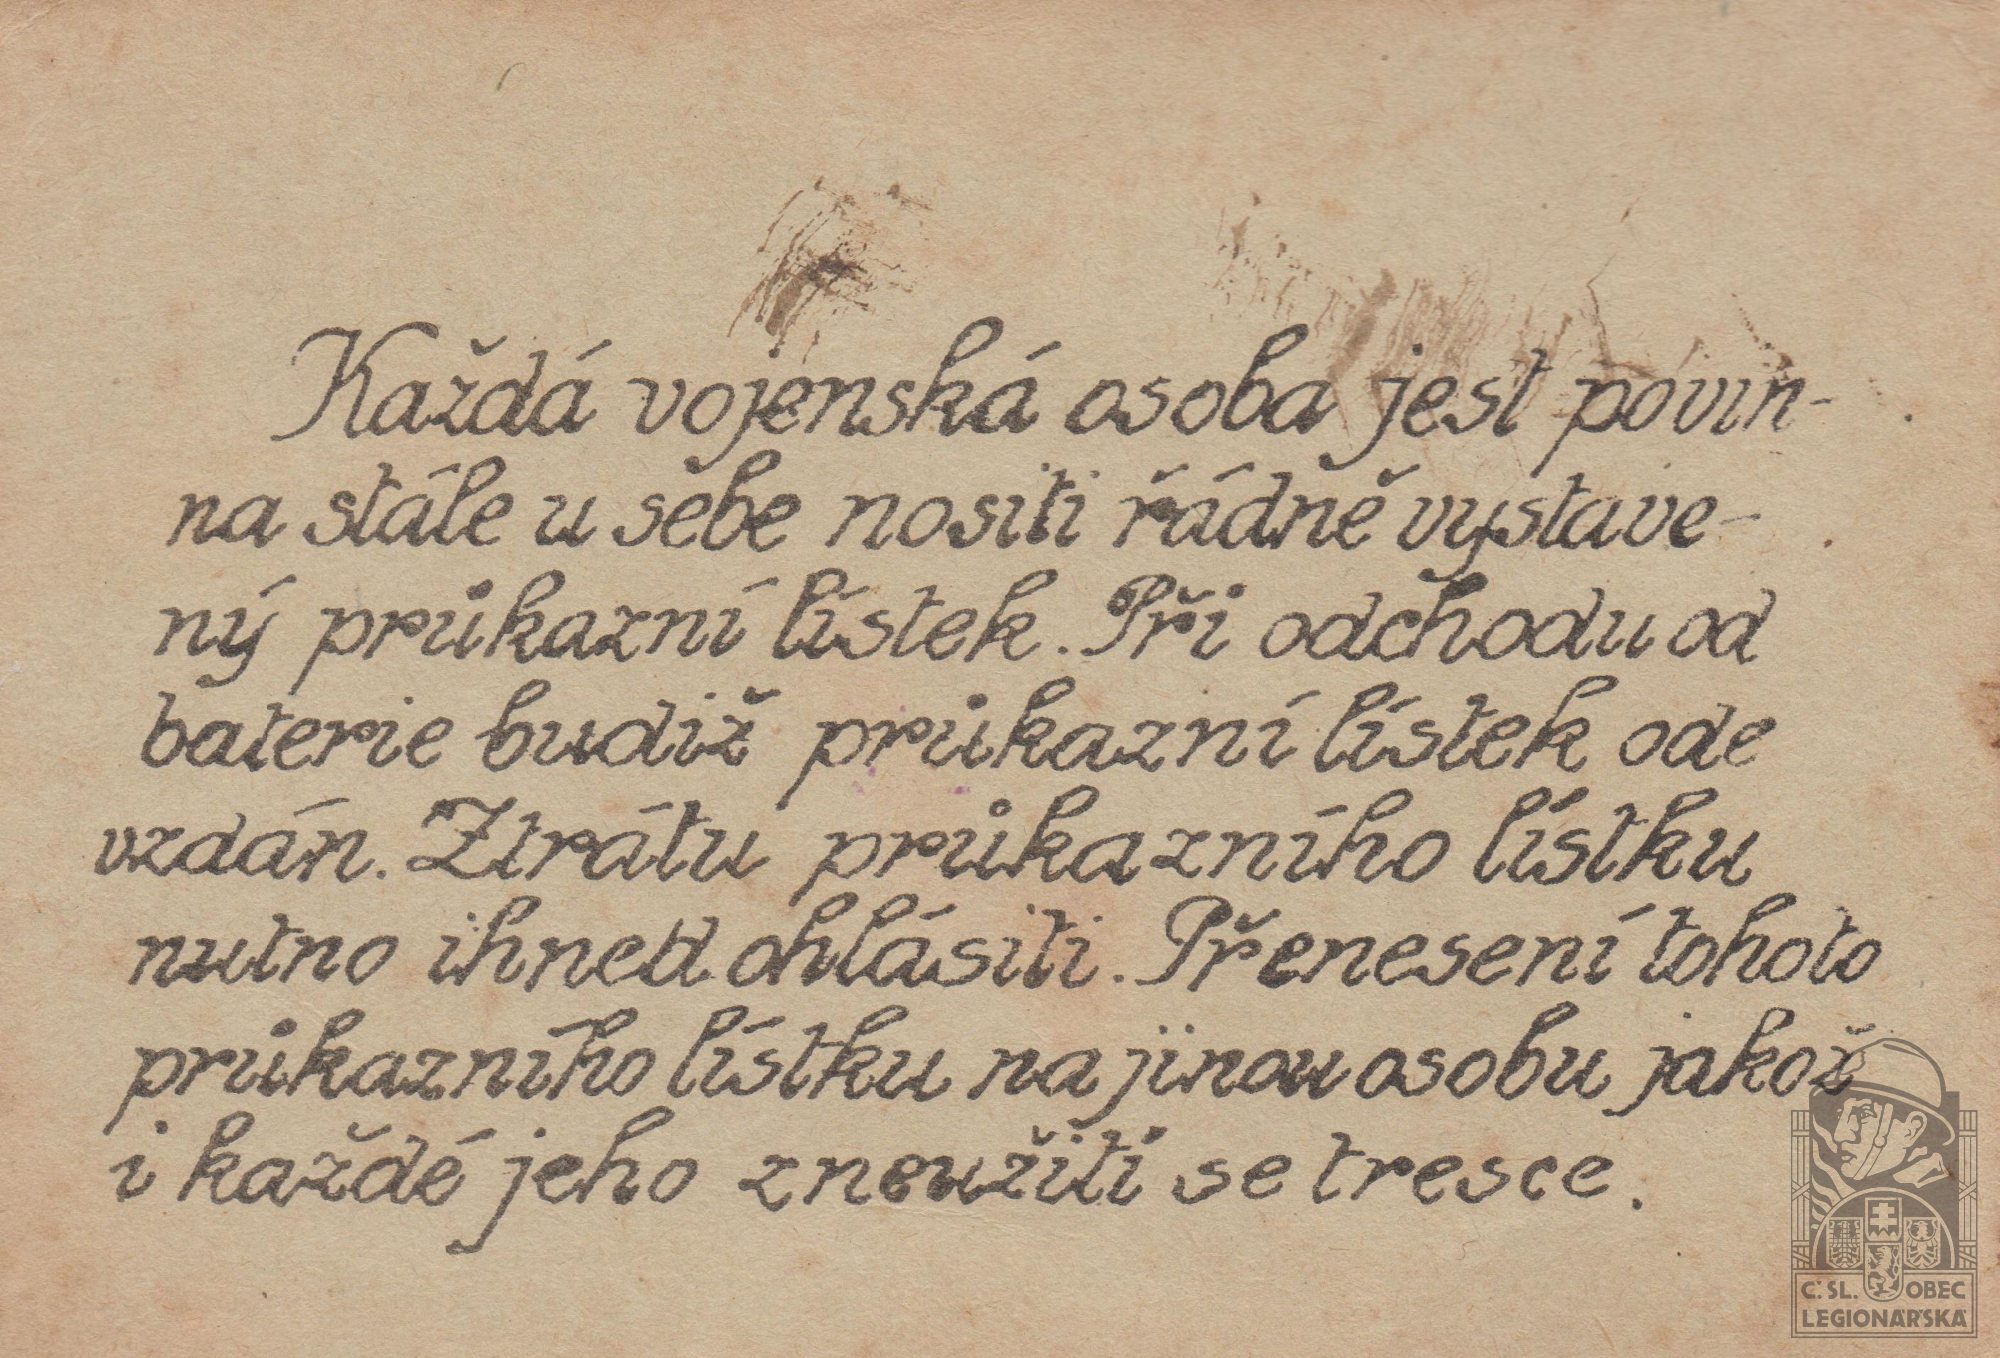 Každá vojenská osoba jest povin-
na stále u sebe nositi řádně vystave-
ný průkazní lístek. Při odchodu od
baterie budiž průkazní lístek ode
vzdán. Ztrátu průkazního lístku
nutno ihned ohlásiti. Přenesení tohoto
průkazního lístku na jinou osobu jakož
i každé jeho zneužití se tresce.
Č. SL. OBEC
LEGIONÁŘSKÁ